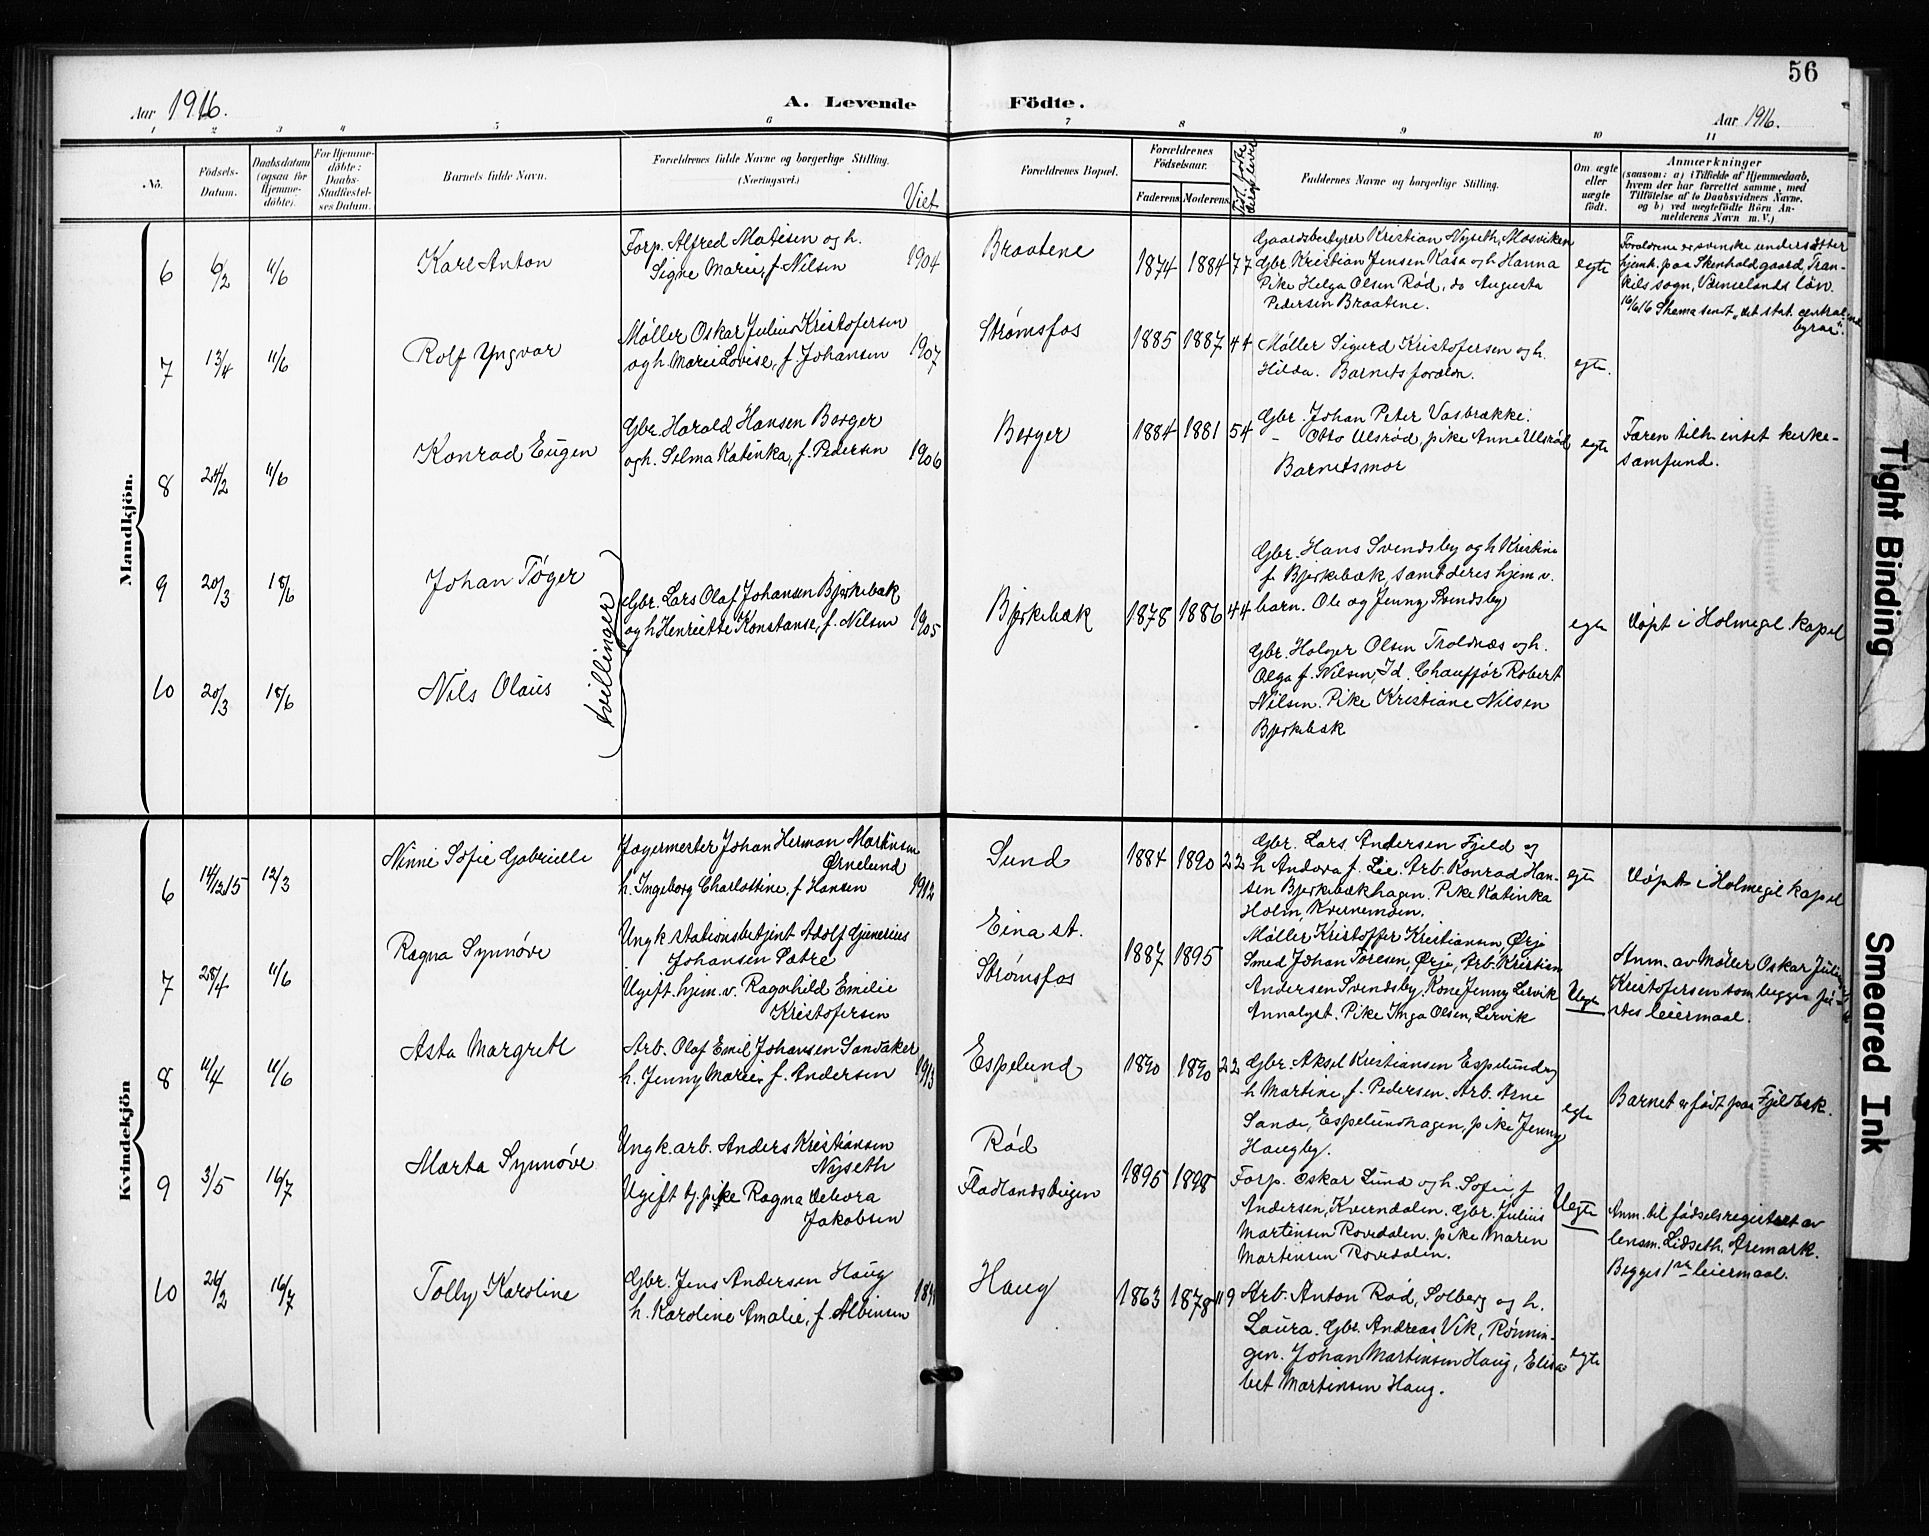 56
Aar 1916.
A. Levende Födte.
Aar 1916.
1 2 3 4 5 6 7 8 9 10 11
Nö.
Födsels-
Datum.
Daabsdatum
(ogsaa for
Hjemme-
döbte).
For Hjemme-
döbte:
Daabs-
Stadfæstel-
ses Datum.
Barnets fulde Navn.
Forældrenes fulde Navne og borgerlige Stilling.
(Næringsvei.)
Viet
Forældrenes Bopæl.
Forældrenes
Födselsaar.
Faderens Moderens
Faddernes Navne og borgerlige Stilling.
Om ægte
eller
uægte
födt.
Anmærkninger
(saasom: a) i Tilfælde af Hjemmedaab,
hvem der har forrettet samme, med
Tilföielse af to Daabsvidners Navne.
og b) ved uægtefödte Börn An-
melderens Navn m. V.)
Mandkjön.
6 6/2 11/6 Karl Anton
Forp. Alfred Matisen og h.
Signe Marie, f. Nilsen 1904
Braatene 1874 1884 7 7
Gaardsbestyrer Kristian Nyseth, Mosviken
Gbr. Kristian Jensen Kasa og h. Hanna
Pike Helga Olsen Rød, do Augusta
Pedersen Braatene.
egte
Forældrene er svenske undersåtter
hjemh. paa Skenholdgaard, Tran-
kils sogn, Værmelands län.
16/6 16 Skema sendt „det stat. central
byraa”.
7 13/4 11/6 Rolf Yngvar
Møller Oskar Julius Kristofersen
og h. Marie Lovise, f. Johansen 1907
Strømsfos 1885 1887 4 4
Møller Sigurd Kristofersen og h.
Hilda. Barnets forældr.
egte.
8 24/2 11/6 Konrad Eugen
Gbr. Harald Hansen Berger
og h. Selma Katinka, f. Pedersen 1906
Berger 1884 1881 5 4
Gbr. Johan Peter Vasbrække.
– Otto Ulsrød, pike Anna Ulsrød
Barnets mor
egte
Faren tilh. intet kirke-
samfund.
9 20/3 18/6 Johan Tøger
tvillinger
Gbr. Lars Olaf Johansen Bjørkebæk
og h. Henriette Konstanse, f. Nilsen 1905
Bjørkebæk 1878 1886 4 4
Gbr. Hans Svendsby og h. Kristine
f. Bjørkebæk, samt deres hjem v.
barn. Ole og Jenny Svendsby
egte
Døpt i Holmegil kapel
10 20/3 18/6 Nils Olaus
Gbr. Holger Olsen Troldnæs og h.
Olga f. Nilsen, Id. Chauffør Robert
Nilsen. Pike Kristiane Nilsen
Bjørkebæk
Kvindekjön
6 14/12 15 12/3 Ninni Sofie Gabrielle
Jægermester Johan Herman Martinsen
Ørnelund
h. Ingeborg Charlottine, f. Hansen 1912
Sund 1884 1890 2 2
Gbr. Lars Andersen Fjeld og
h Andora f. Lie. Arb. Konrad Han-
sen Bjørkebækhagen. Pike Katinka
Holm, Kvernemoen.
egte
Døpt i Holmegil kapel
7 28/4 11/6 Ragna Synnøve
Ungk. stationsbetjent Adolf Gjenerius
Johansen Sætre
Ugift. hjem. v. Ragnhild Emilie
Kristofersen
Eina st.
Strømsfos 1887 1895
Møller Kristoffer Kristiansen, Ørje
Smed Johan Toresen, Ørje, Arb. Kristian
Andersen Svendsby. Kone Jenny Lervik
Annalyst. Pike Inga Olsen, Lervik
Uegte
Anm. av Møller Oskar Julius
Kristofersen som begges før-
stes leiermaal.
8 11/4 11/6 Asta Margrete
Arb. Olaf Emil Johansen Sandaker
h. Jenny Marie, f. Andersen 1913
Espelund 1890 1890 2 2
Gbr. Aksel Kristiansen Espelund og
h Martine, f. Pedersen. Arb. Arne
Sande, Espelundhagen, pike Jenny
Haugby.
egte
Barnet er født paa Fjelbæk.
9 3/5 16/7 Marta Synnøve
Ungk. arb. Anders Kristiansen
Nyseth
Ugift tj. pike Ragna Debora
Jakobsen
Rød
Fladlandsteigen 1895 1898
Forp. Oskar Lund og h. Sofie f
Andersen, Kverndalen. Gbr. Julius
Martinsen Rovedalen. pike Maren
Martinsen Rovedalen.
Uegte
Anm. til fødselsregistret av
lensm. Lidseth, Aremark.
Begges 1ste leiermaal.
10 26/2 16/7 Tolly Karoline
Gbr. Jens Andersen Haug
h. Karoline Amalie, f. Albinsen
Haug 1863 1878 11 9
Arb. Anton Rød, Solberg og h.
Laura. Gbr. Andreas Vik, Rønnin-
gen. Johan Martinsen Haug, Elisa-
bet Martinsen Haug.
egte
Tight Binding
Smeared Ink